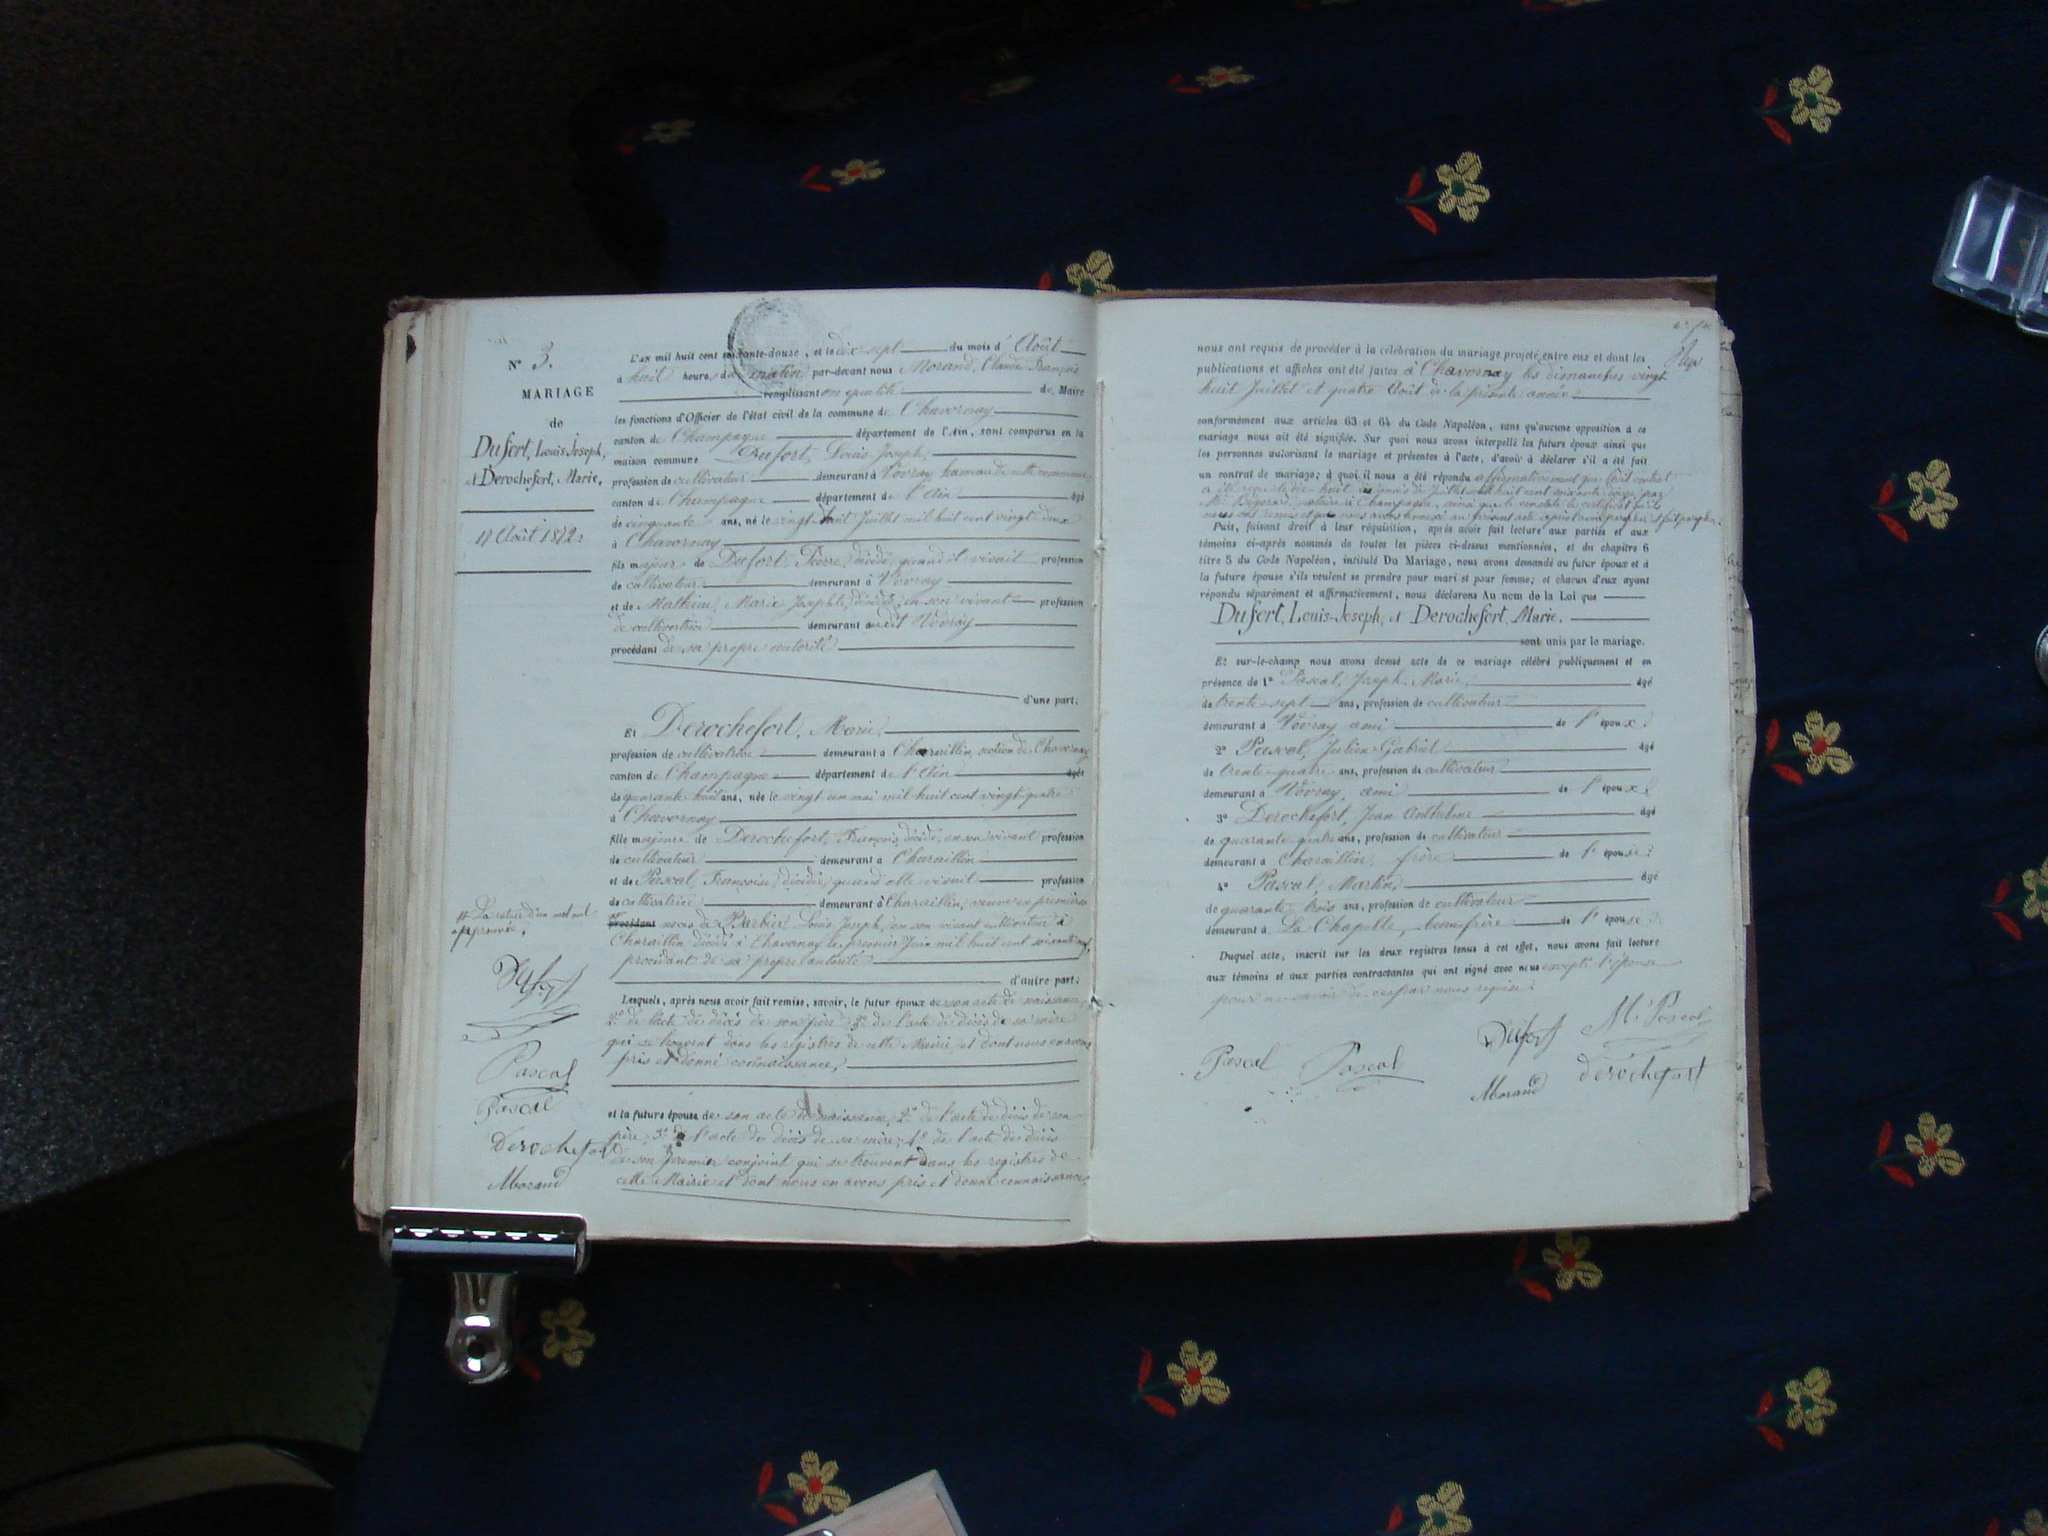 N° 3.
MARIAGE
de
Dufort, Louis-Joseph,
et Derochefort, Marie.
17 Août 1872
L'an mil huit cent soixante-douze, et le dix-sept du mois d'Août
à huit heures du matin par-devant nous Morand, Claude François
remplissant en qualité de Maire
les fonctions d'Officier de l'état civil de la commune de Chavornay
canton de Champagne département de l'Ain, sont comparus en la
maison commune Dufort, Louis-Joseph,
profession de cultivateur demeurant à Vovray hameau de cette commune
canton de Champagne département de l'Ain âgé
de cinquante ans, né le vingt-huit Juillet mil huit cent vingt-deux
à Chavornay
fils majeur de Dufort, Pierre, décédé, quand il vivait profession
de cultivateur demeurant à Vovray
et de Mathieu, Marie Josephte, décédée, en son vivant profession
de cultivatrice demeurant audit Vovray
procédant de sa propre autorité
d'une part;
Et Derochefort, Marie,
profession de cultivatrice demeurant à Charaillin, section de Chavornay
canton de Champagne département de l'Ain âgée
de quarante-huit ans, née le vingt-un mai mil huit cent vingt-quatre
à Chavornay
fille majeure de Derochefort, François, décédé, en son vivant profession
de cultivateur demeurant à Charaillin
et de Pascal, Françoise, décédée, quand elle vivait profession
de cultivatrice demeurant à Charaillin, veuve en premières
noces de Louis Joseph, en son vivant cultivateur à
Charaillin décédé à Chavornay le premier Juin mil huit cent soixante
procédant de sa propre autorité
d'autre part;
La rature d'un mot nul
approuvée.
Lesquels, après nous avoir fait remise, savoir, le futur époux de son acte de naissance,
2° de l'acte de décès de son père 3° de l'acte de décès de sa mère
qui se trouvent dans les registres de cette Mairie et dont nous en avons
pris et donné connaissance,
et la future épouse de son acte de naissance, 2° de l'acte de décès de son
père, 3° de l'acte de décès de sa mère; 4° de l'acte de décès
de son premier conjoint qui se trouvent dans les registres de
cette Mairie et dont nous en avons pris et donné connaissance,
Dufort
Pascal
Pascal
Derochefort
Morand
nous ont requis de procéder à la célébration du mariage projeté entre eux et dont les
publications et affiches ont été faites à Chavornay les dimanches vingt-
huit Juillet et quatre Août de la présente année
conformément aux articles 63 et 64 du Code Napoléon, sans qu'aucune opposition à ce
mariage nous ait été signifiée. Sur quoi nous avons interpellé les futurs époux ainsi que
les personnes autorisant le mariage et présentes à l'acte, d'avoir à déclarer s'il a été fait
un contrat de mariage; à quoi il nous a été répondu affirmativement que ledit contrat
notaire à Champagne, ainsi que le constate le certificat
Puis, faisant droit à leur réquisition, après avoir fait lecture aux parties et aux
témoins ci-après nommés de toutes les pièces ci-dessus mentionnées, et du chapitre 6
titre 5 du Code Napoléon, intitulé Du Mariage, nous avons demandé au futur époux et à
la future épouse s'ils veulent se prendre pour mari et pour femme; et chacun d'eux ayant
répondu séparément et affirmativement, nous déclarons Au nom de la Loi que
Dufort, Louis-Joseph, et Derochefort, Marie.
sont unis par le mariage.
Et sur-le-champ nous avons dressé acte de ce mariage célébré publiquement et en
présence de 1° Pascal, Joseph Marie, âgé
de trente-sept ans, profession de cultivateur
demeurant à Vovray ami de l'époux;
2° Pascal, Julien-Gabriel âgé
de trente-quatre ans, profession de cultivateur
demeurant à Vovray, ami de l'époux;
3° Derochefort, Jean Anthelme âgé
de quarante-quatre ans, profession de cultivateur
demeurant à Charaillin, frère de l'épouse;
4° Pascal, Martin, âgé
de quarante-trois ans, profession de cultivateur
demeurant à La Chapelle, beau-frère de l'épouse;
Duquel acte, inscrit sur les deux registres tenus à cet effet, nous avons fait lecture
aux témoins et aux parties contractantes qui ont signé avec nous excepté l'épouse
pour ne savoir de ce par nous requise.
Dufort Mn Pascal
Pascal Pascal
Morand derochefort